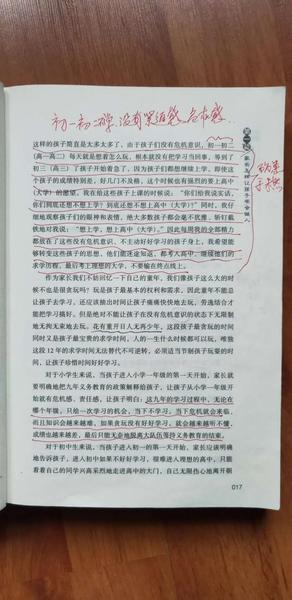 初一初二学，没有紧迫感、危机感。
这样的孩子简直是太多太多了，由于孩子们没有危机意识，初一初二
（高一高二）每天就是想着怎么玩，根本就没有把学习当回事，等到了
初三（高三）孩子开始着急了，因为孩子们都想继续上学，即使这
个孩子的成绩特别差，好几门不及格，这个时候也有强烈的要上高中
（大学）的愿望。我在给这些孩子上课的时候说：“你们给我说实话，
你们到底还想不想上学？到底还想不想上高中（大学）？”同时，我仔
细地观察孩子们的眼神和表情，绝大多数孩子都会毫不犹豫、斩钉截
铁地对我说：“想上学，想上高中（大学）。”因此每周我的全部精力
都放在了这些没有危机意识、不主动好好学习的孩子身上，我希望能
够转变这些孩子的思想，他们能迷途知返，都考入高中，继续他们的
求学历程，最后考上理想的大学，不要输在终点线上。
作为家长我们不妨回忆一下自己的童年，我们像孩子这么大的时
候不也是很贪玩吗？玩是孩子最基本的权利和需求，因此童年不能总
让孩子去学习，还应该抽出时间让孩子痛痛快快地去玩，劳逸结合才
能把学习搞好。但是绝对不能让孩子在没有危机意识的状态下无限制
地无拘无束地去玩，花有重开日人无再少年，这段孩子最贪玩的时间
同时又是孩子最宝贵的求学时间，人的一生什么时候都可以玩，唯独
这段12年的求学时间无法替代不可逆转，必须适当节制孩子玩耍的时
间，让孩子珍惜时间好好学习。
对于小学生来说，当孩子进入小学一年级的第一天开始，家长就
要明确地把九年义务教育的政策解释给孩子，让孩子从小学一年级开
始就有危机感，责任感，让孩子明白：这九年的学习过程中，无论在
哪个年级，只给一次学习的机会，当下不学习，当下危机就会来临，
而且知识会越来越难，如果贪玩没有好好学习，就会越来越听不懂，
成绩也越来越差，最后只能无奈地脱离大队伍等待义务教育的结束。
对于初中生来说，当孩子进入初一的第一天开始，家长应该明确
地告诉孩子，进入初中如果不好好学习，很难进入理想的高中，只能
看着自己的同学兴高采烈地走进高中的大门，自己无限伤心地离开朝
017